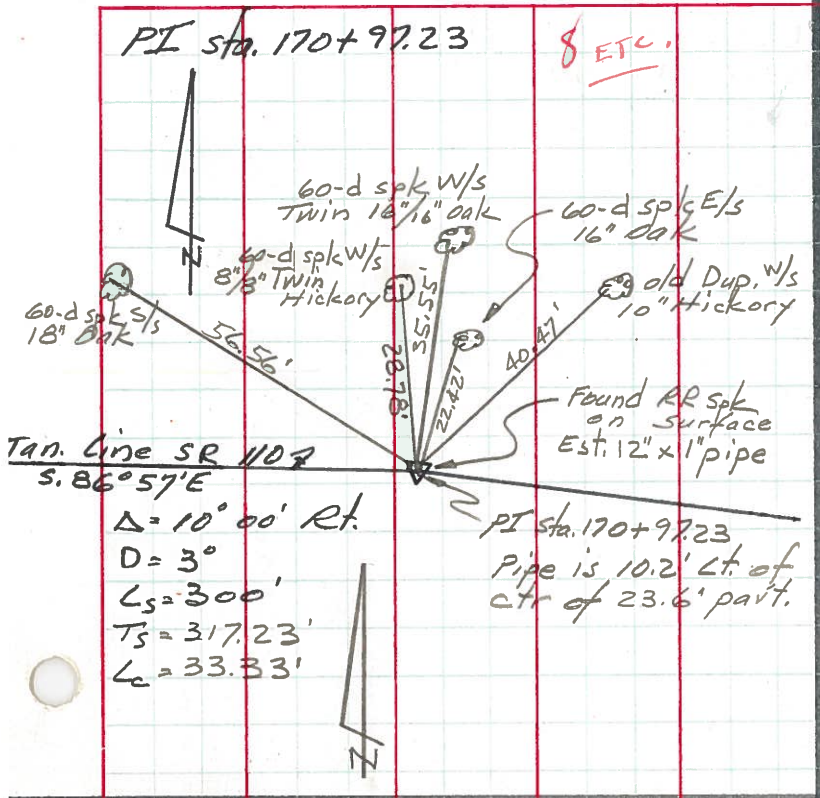 PI sta. 170+97.23
8 ETC.
60-d spk W/s
Twin 16"/16" Oak
60-d spk E/s
16" Oak
60-d spk W/s
8"/8" Twin
Hickory
old Dup. W/s
10" Hickory
60-d spk S/s
18" Oak
56.56'
28.78'
35.55'
22.42'
40.47'
N
Found RR spk
on surface
Est. 12" x 1" pipe
Tan. Line SR 1107
S. 86° 57' E
Δ = 10° 00' Rt.
D = 3°
Ls = 300'
Ts = 317.23'
Lc = 33.33'
PI sta. 170+97.23
Pipe is 10.2' Lt. of
ctr of 23.6' pav't.
N